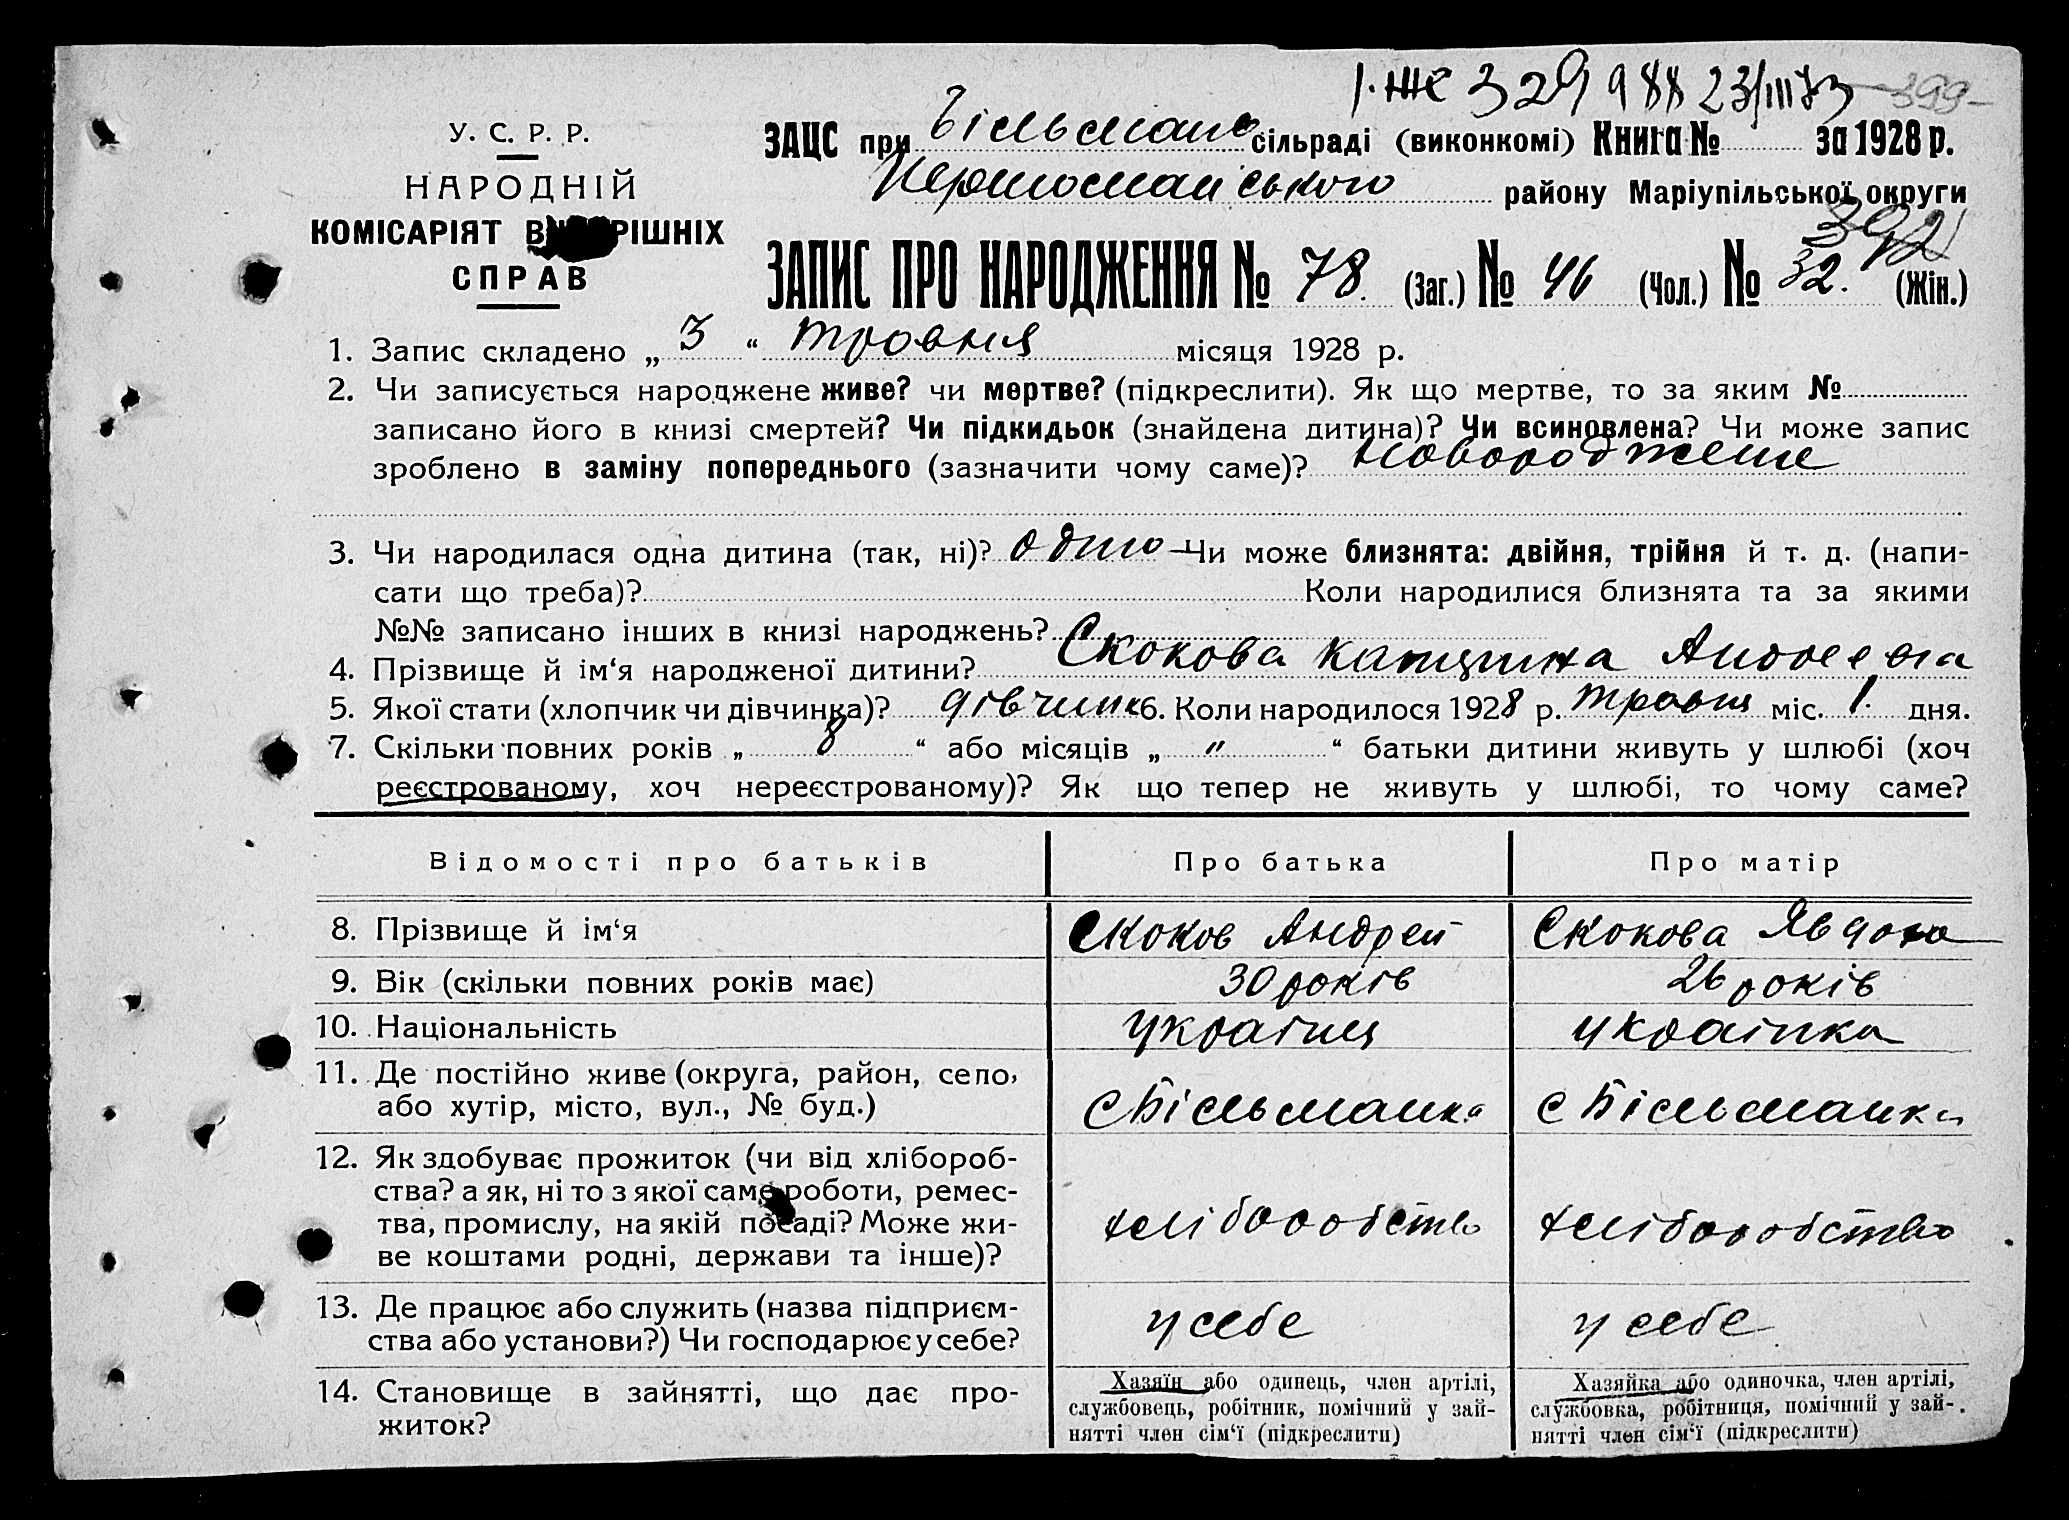 І-ЖС 329988 23/III 73 399-
У. С. Р. Р.
НАРОДНІЙ
КОМІСАРІЯТ ВН РІШНІХ
СПРАВ
ЗАЦС при Більмань сільраді (виконкомі) Книга № за 1928 р.
Першомайського району Маріупільської округи
392
ЗАПИС ПРО НАРОДЖЕННЯ № 78. (Заг.) № 46 (Чол.) № 32. (Жін.)
1. Запис складено „ 3 “ травня місяця 1928 р.
2. Чи записується народжене живе? чи мертве? (підкреслити). Як що мертве, то за яким №
записано його в книзі смертей? Чи підкидьок (знайдена дитина)? Чи всиновлена? Чи може запис
зроблено в заміну попереднього (зазначити чому саме)? Новороджене
3. Чи народилася одна дитина (так, ні)? одно Чи може близнята: двійня, трійня й т. д. (напи-
сати що треба)? Коли народилися близнята та за якими
№№ записано інших в книзі народжень?
4. Прізвище й ім‘я народженої дитини? Скокова Андреевна
5. Якої стати (хлопчик чи дівчинка)? дівчинк 6. Коли народилося 1928 р. травня міс. 1. дня.
7. Скільки повних років „ 8 “ або місяців „ " “ батьки дитини живуть у шлюбі (хоч
реєстрованому, хоч нереєстрованому)? Як що тепер не живуть у шлюбі, то чому саме?
Відомості про батьків Про батька Про матір
8. Прізвище й ім‘я Скоков Андрей Скокова Явдоха
9. Вік (скільки повних років має) 30 років 26 років
10. Національність українц українка
11. Де постійно живе (округа, район, село,
або хутір, місто, вул., № буд.) с Більманка с Більманка
12. Як здобуває прожиток (чи від хлібороб-
ства? а як, ні то з якої саме роботи, ремес-
тва, промислу, на якій посаді? Може жи- хліборобство хліборобство
ве коштами родні, держави та інше)?
13. Де працює або служить (назва підприєм-
ства або установи?) Чи господарює у себе? у себе у себе
14. Становище в зайнятті, що дає про-
житок?
Хазяїн або одинець, член артілі,
службовець, робітник, помічний у зай-
нятті член сім‘ї (підкреслити)
Хазяйка або одиночка, член артілі,
службовка, робітниця, помічний у зай-
нятті член сім‘ї (підкреслити)